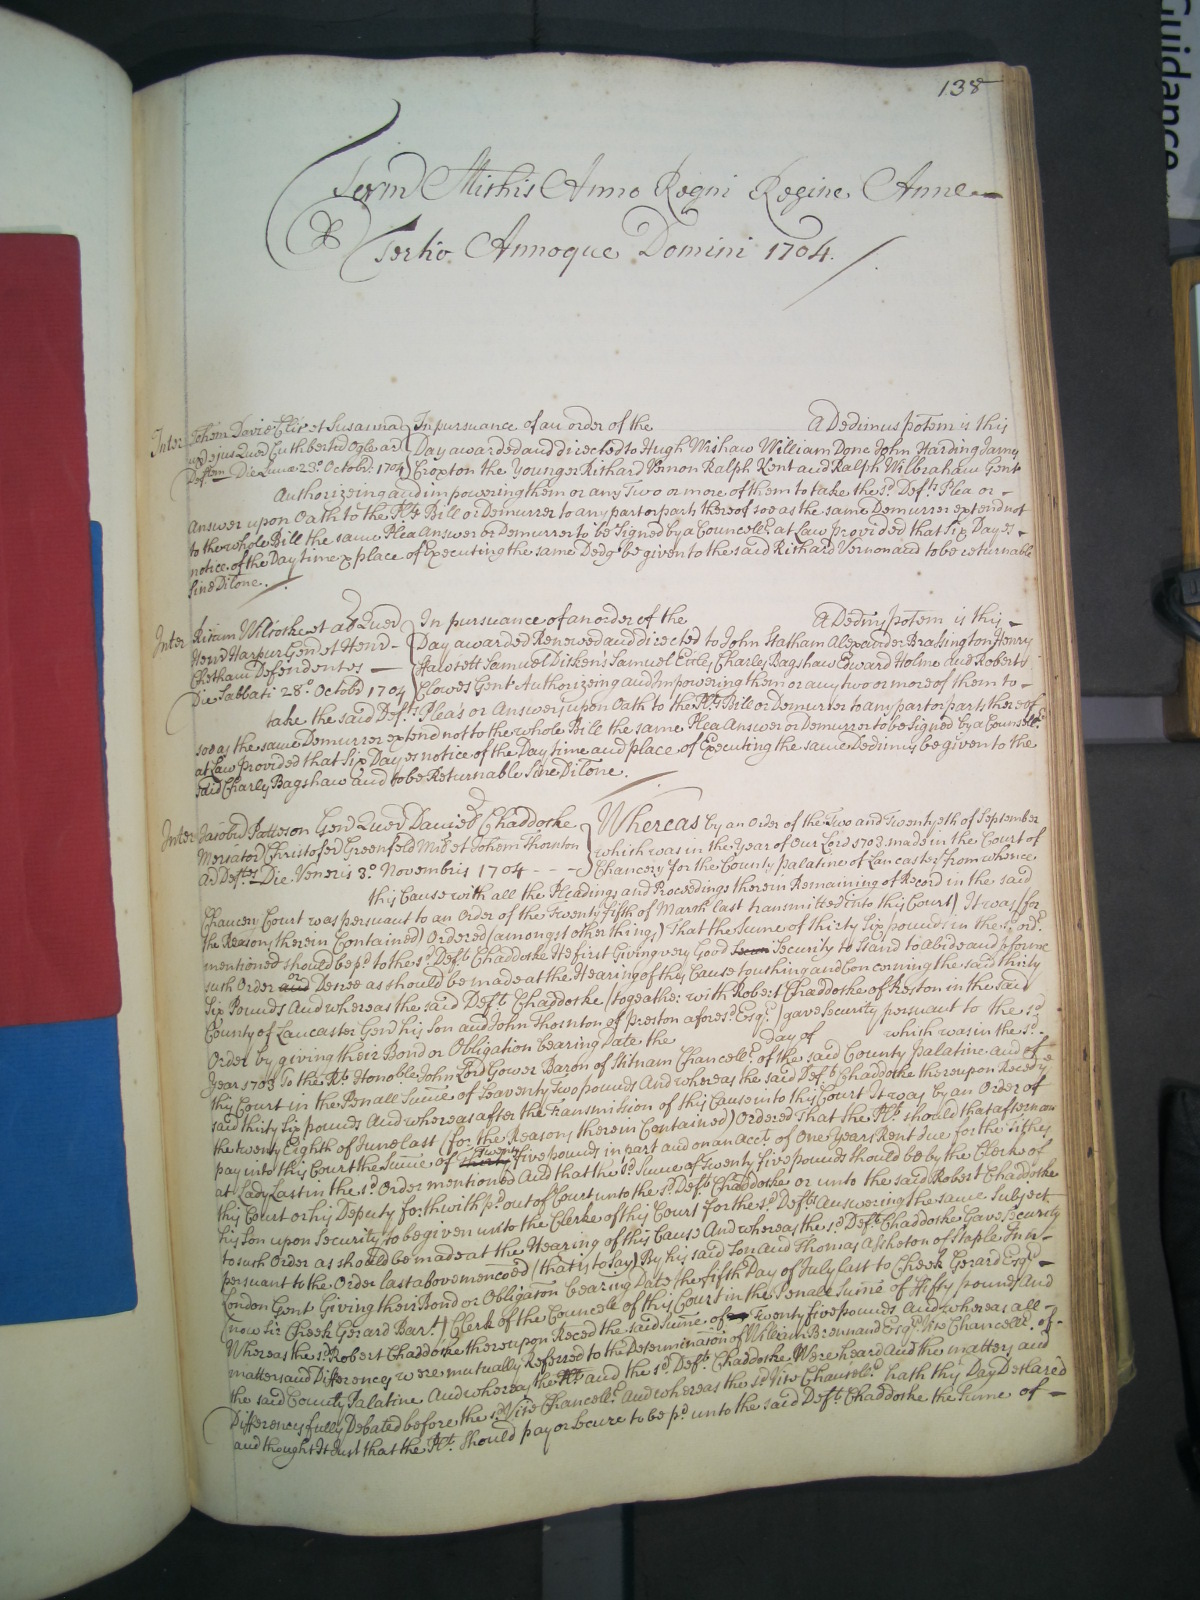 138
Term Michis Anno Regni Regine Anne
Tertio Annoque Domini 1704.
Inter Johem David Clic et Susannā In pursuance of an order of the A Dedimus potem is this
ux ejus Quer Cuthbertū Ogle ar Day awarded and directed to Hugh Wishaw William Done John Harding James
Deftem Die Lune 23º Octobr. 1704 Croxton the Younger Richard Vernon Ralph Kent and Ralph Wilbraham Gent
Authorizeing and impowering them or any Two or more of them to take the sd. Defts. Plea or
Answer upon Oath to the Plts Bill or Demurrer to any part or parts thereof soe as the same Demurrer extend not
to the whole Bill the same Plea Answer or Demurrer to be Signed by a Councellr. at Law provided that Six Dayes
notice of the Day time & place of Executing the same Deds be given to the said Richard Vernon and to be returnable
Sine Dilone.
Inter Wilcoske et al Quer In pursuance of an order of the A Dedmj potem is this
Henr Harpur Gen et Henr Day awarded Renewed and directed to John Statham Alexander Brassington Henry
Chetham Defendentes Samuel Dickens Samuel Charles Bagshaw Edward Holme and Robert
Die Sabbati 28º Octobr 1704 Clowes Gent Authorizeing and Impowering them or any two or more of them to
take the said Defts. Pleas or Answers upon Oath to the Plts Bill or Demurrer to any part or parts thereof
soe as the same Demurrer extend not to the whole Bill the same Plea Answer or Demurrer to be Signed by a Counsellr.
at Law provided that Six Dayes notice of the Day time and place of Executing the same Dedimus be given to the
said Charles Bagshaw and to be Returnable Sine Dilone.
Inter Jacobū Patteson Gen Quer Daniel Chaddocke Whereas by an Order of the Two and Twentyeth of September
Mercator Christofer Greenfeld Mil et Johem Thornton which was in the Year of our Lord 1703 made in the Court of
Ar Deftes Die Veneris 3º Novembris 1704 - - - Chancery for the County palatine of Lancaster from whence
this Cause with all the Pleadings and Proceedings therein Remaining of Record in the said
Chancery Court was persuant to an Order of the twenty fifth of March last transmitted into this Court) It was (for
the Reasons therein Contained) Ordered (amongst other things) That the Sume of thirty Six pounds in the sd. ordr.
mentioned should be pd. to the sd. Deft Chaddocke He first Giving very Good Security to Stand to Abide and pforme
such Order or Decree as should be made at the Hearing of this Cause touching and Concerning the said thirty
Six Pounds And whereas the said Deft Chaddocke (togeather with Robert Chaddocke of Preston in the said
County of Lancaster Gent his Son and John Thornton of preston aforesd. Esqr.) gave security persuant to the sd.
Order by giving their Bond or Obligation bearing Date the day of which was in the sd.
Year 1703 To the Rt. Honoble John Lord Gower Baron of Stitnam Chancellr. of the said County Palatine and of
this Court in the Penall Sume of Seaventy Two pounds And whereas the said Deft. Chaddocke thereupon Reced ye
said thirty Six pounds And whereas after the transmission of this Cause into this Court It was by an Order of
the twenty Eighth of June last (for the Reasons therein Contained) Ordered That the Plt. should that afternoon
pay into this Court the Sume of Twenty five pounds in part and on an Acct. of One Years Rent due for the tithes
at Lady Last in the sd. Order mentioned And that the sd. Sume of Twenty five pounds should be by the Clerke of
this Court or his Deputy forthwith pd. out of Court unto the sd. Deft Chaddocke or unto the said Robert Chaddocke
his Son upon Security to be given unto the Clerke of this Court for the sd. Defts Answering the same Subject
to such Order as should be made at the Hearing of this Cause And whereas the sd. Deft. Chaddocke Gave Security
persuant to the Order last above menconed (that is to Say) By his said Son and Thomas Assheton of Staple Inn
London Gent Giving their Bond or Obligacon bearing Date the fifth Day of July last to Cheek Gerard Esqr.
(now Sir Cheek Gerard Bart.) Clerk of the Councell of this Court in the Penall Sume of Fifty pounds And
Whereas the sd. Robert Chaddocke thereupon Reced the said Sume of Twenty five pounds And whereas all
matters and Differences were mutually Referred to the Determinacon of William Brennand Esqr. Vice Chancellr. of
the said County Palatine And whereas the Plt and the sd. Deft. Chaddocke Were heard And the matters and
Differences fully Debated before the sd. Vice Chancellr. And whereas the sd. Vice Chancellr. hath this Day Declared
and thought It Just that the Plt. should pay or secure to be pd. unto the said Deft Chaddocke the Sume of
Guidance